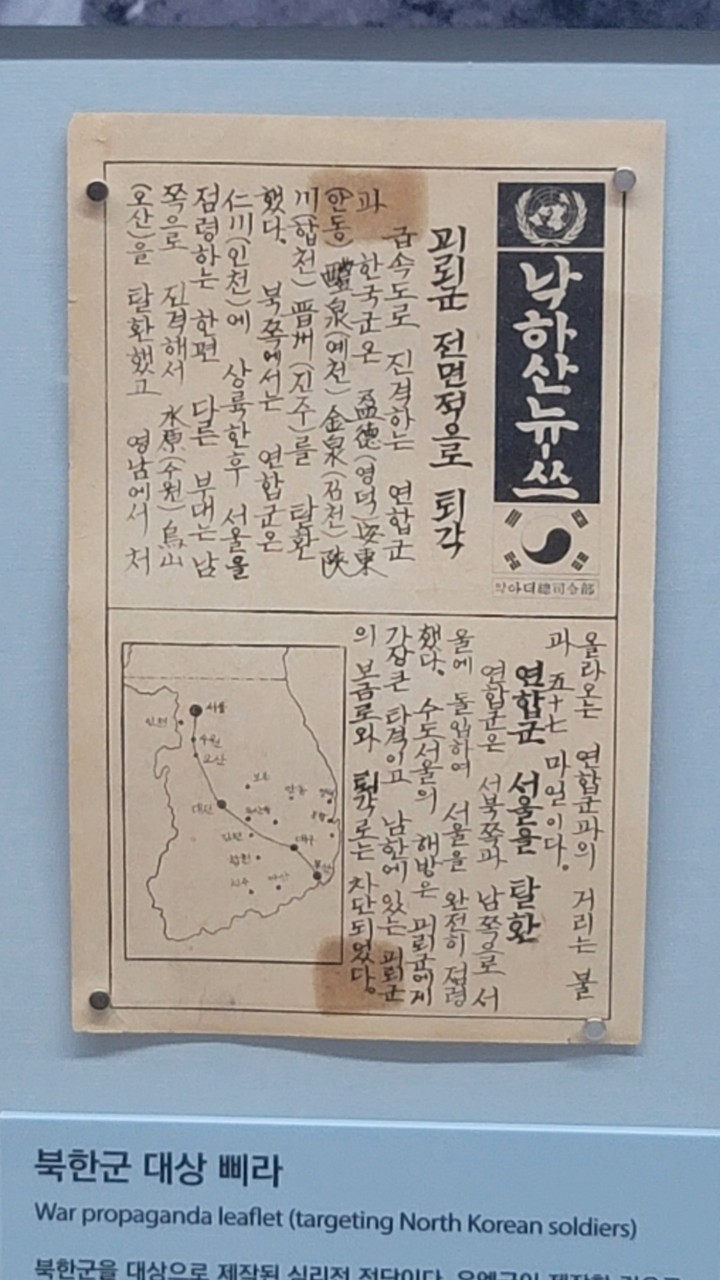 낙하산뉴-쓰
맥아더總司令部
괴뢰군 전면적으로 퇴각
급속도로 진격하는 연합군
과 한국군은 盈德(영덕)安東
(안동) 醴泉(예천) 金泉(김천) 陜
川(합천) 晋州(진주)를 탈환
했다. 북쪽에서는 연합군은
仁川(인천)에 상륙한후 서울을
점령하는 한편 다른 부대는 남
쪽으로 진격해서 水原(수원) 烏山
(오산)을 탈환했고 영남에서 처
올라오는 연합군과의 거리는 불
과 五十七 마일이다.
연합군 서울을 탈환
연합군은 서북쪽과 남쪽으로 서
울에 돌입하여 서울을 완전히 점령
했다. 수도서울의 해방은 괴뢰군에게
가장큰 타격이고 남한에 있는 괴뢰군
의 보급로와 퇴각로는 차단되었다.
서울
인천
수원
오산
대전
안동
김천
대구
합천
진주
마산
부산
북한군 대상 삐라
War propaganda leaflet (targeting North Korean soldiers)
북한군을 대상으로 제작된 심리전 전단이다. 유엔군이 제작한